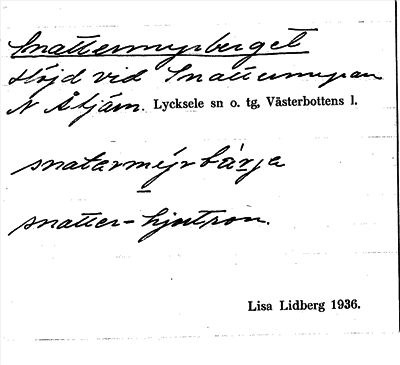 Snattermyrberget
Höjd vid Snattermyran
N Åtjärn. Lycksele sn o. tg, Västerbottens l.
snatarmýrbärja
snatter = hjortron.
Lisa Lidberg 1936.